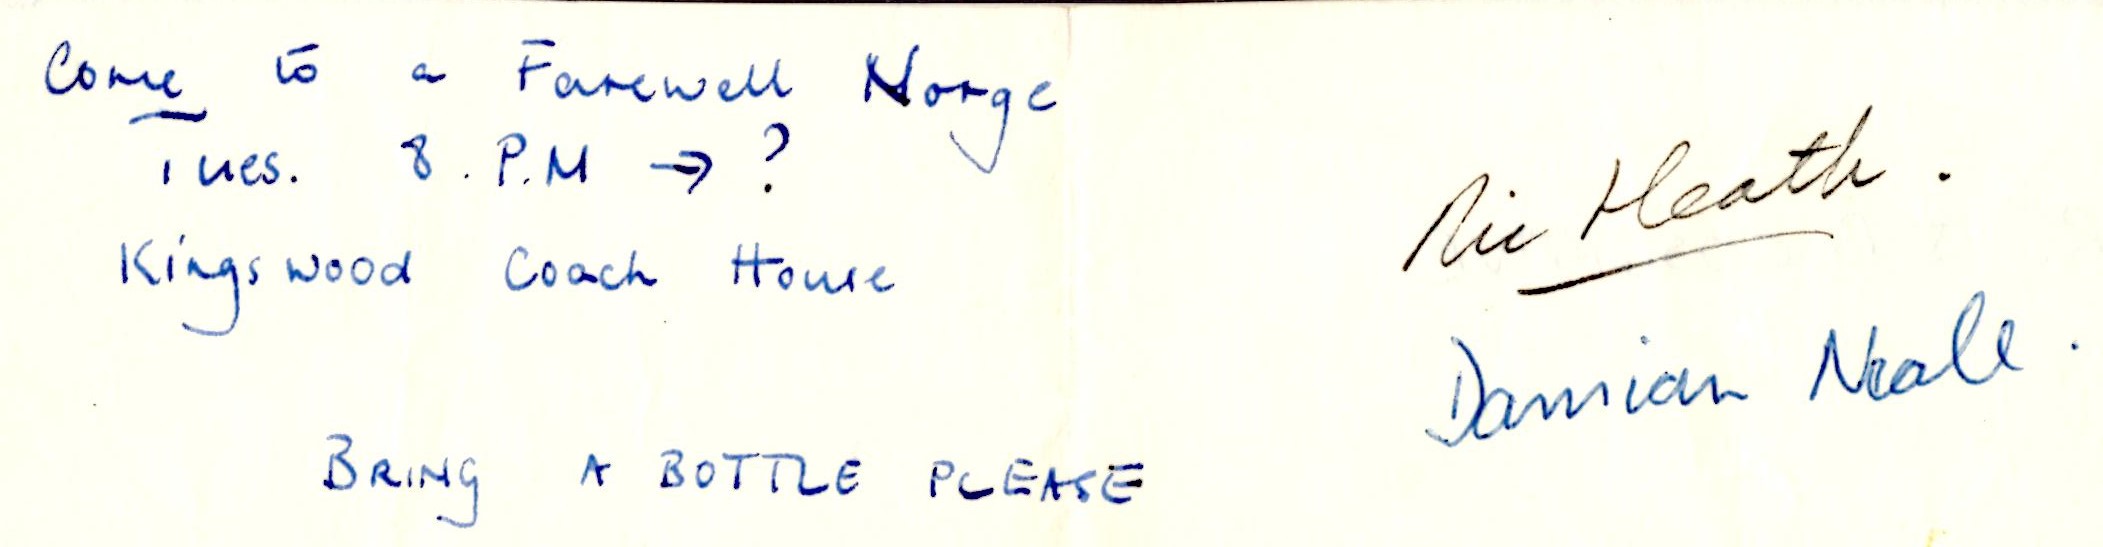 Come to a Farewell Norge
Tues. 8. P.M → ?
Kingswood Coach House
BRING A BOTTLE PLEASE
Nic Heath.
Damian Neale.